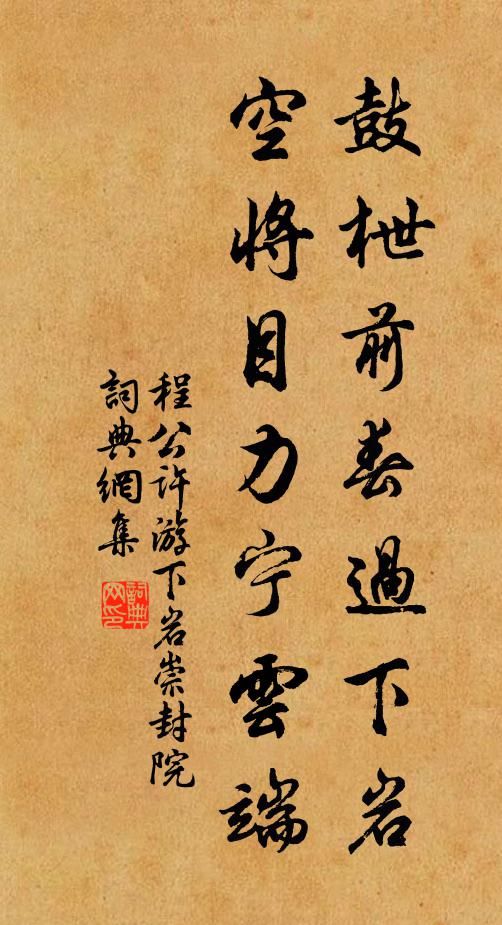 鼓枻前春過下岩
空將目力宁雲端
程公許游下岩崇封院
詞典網集
詞典网印